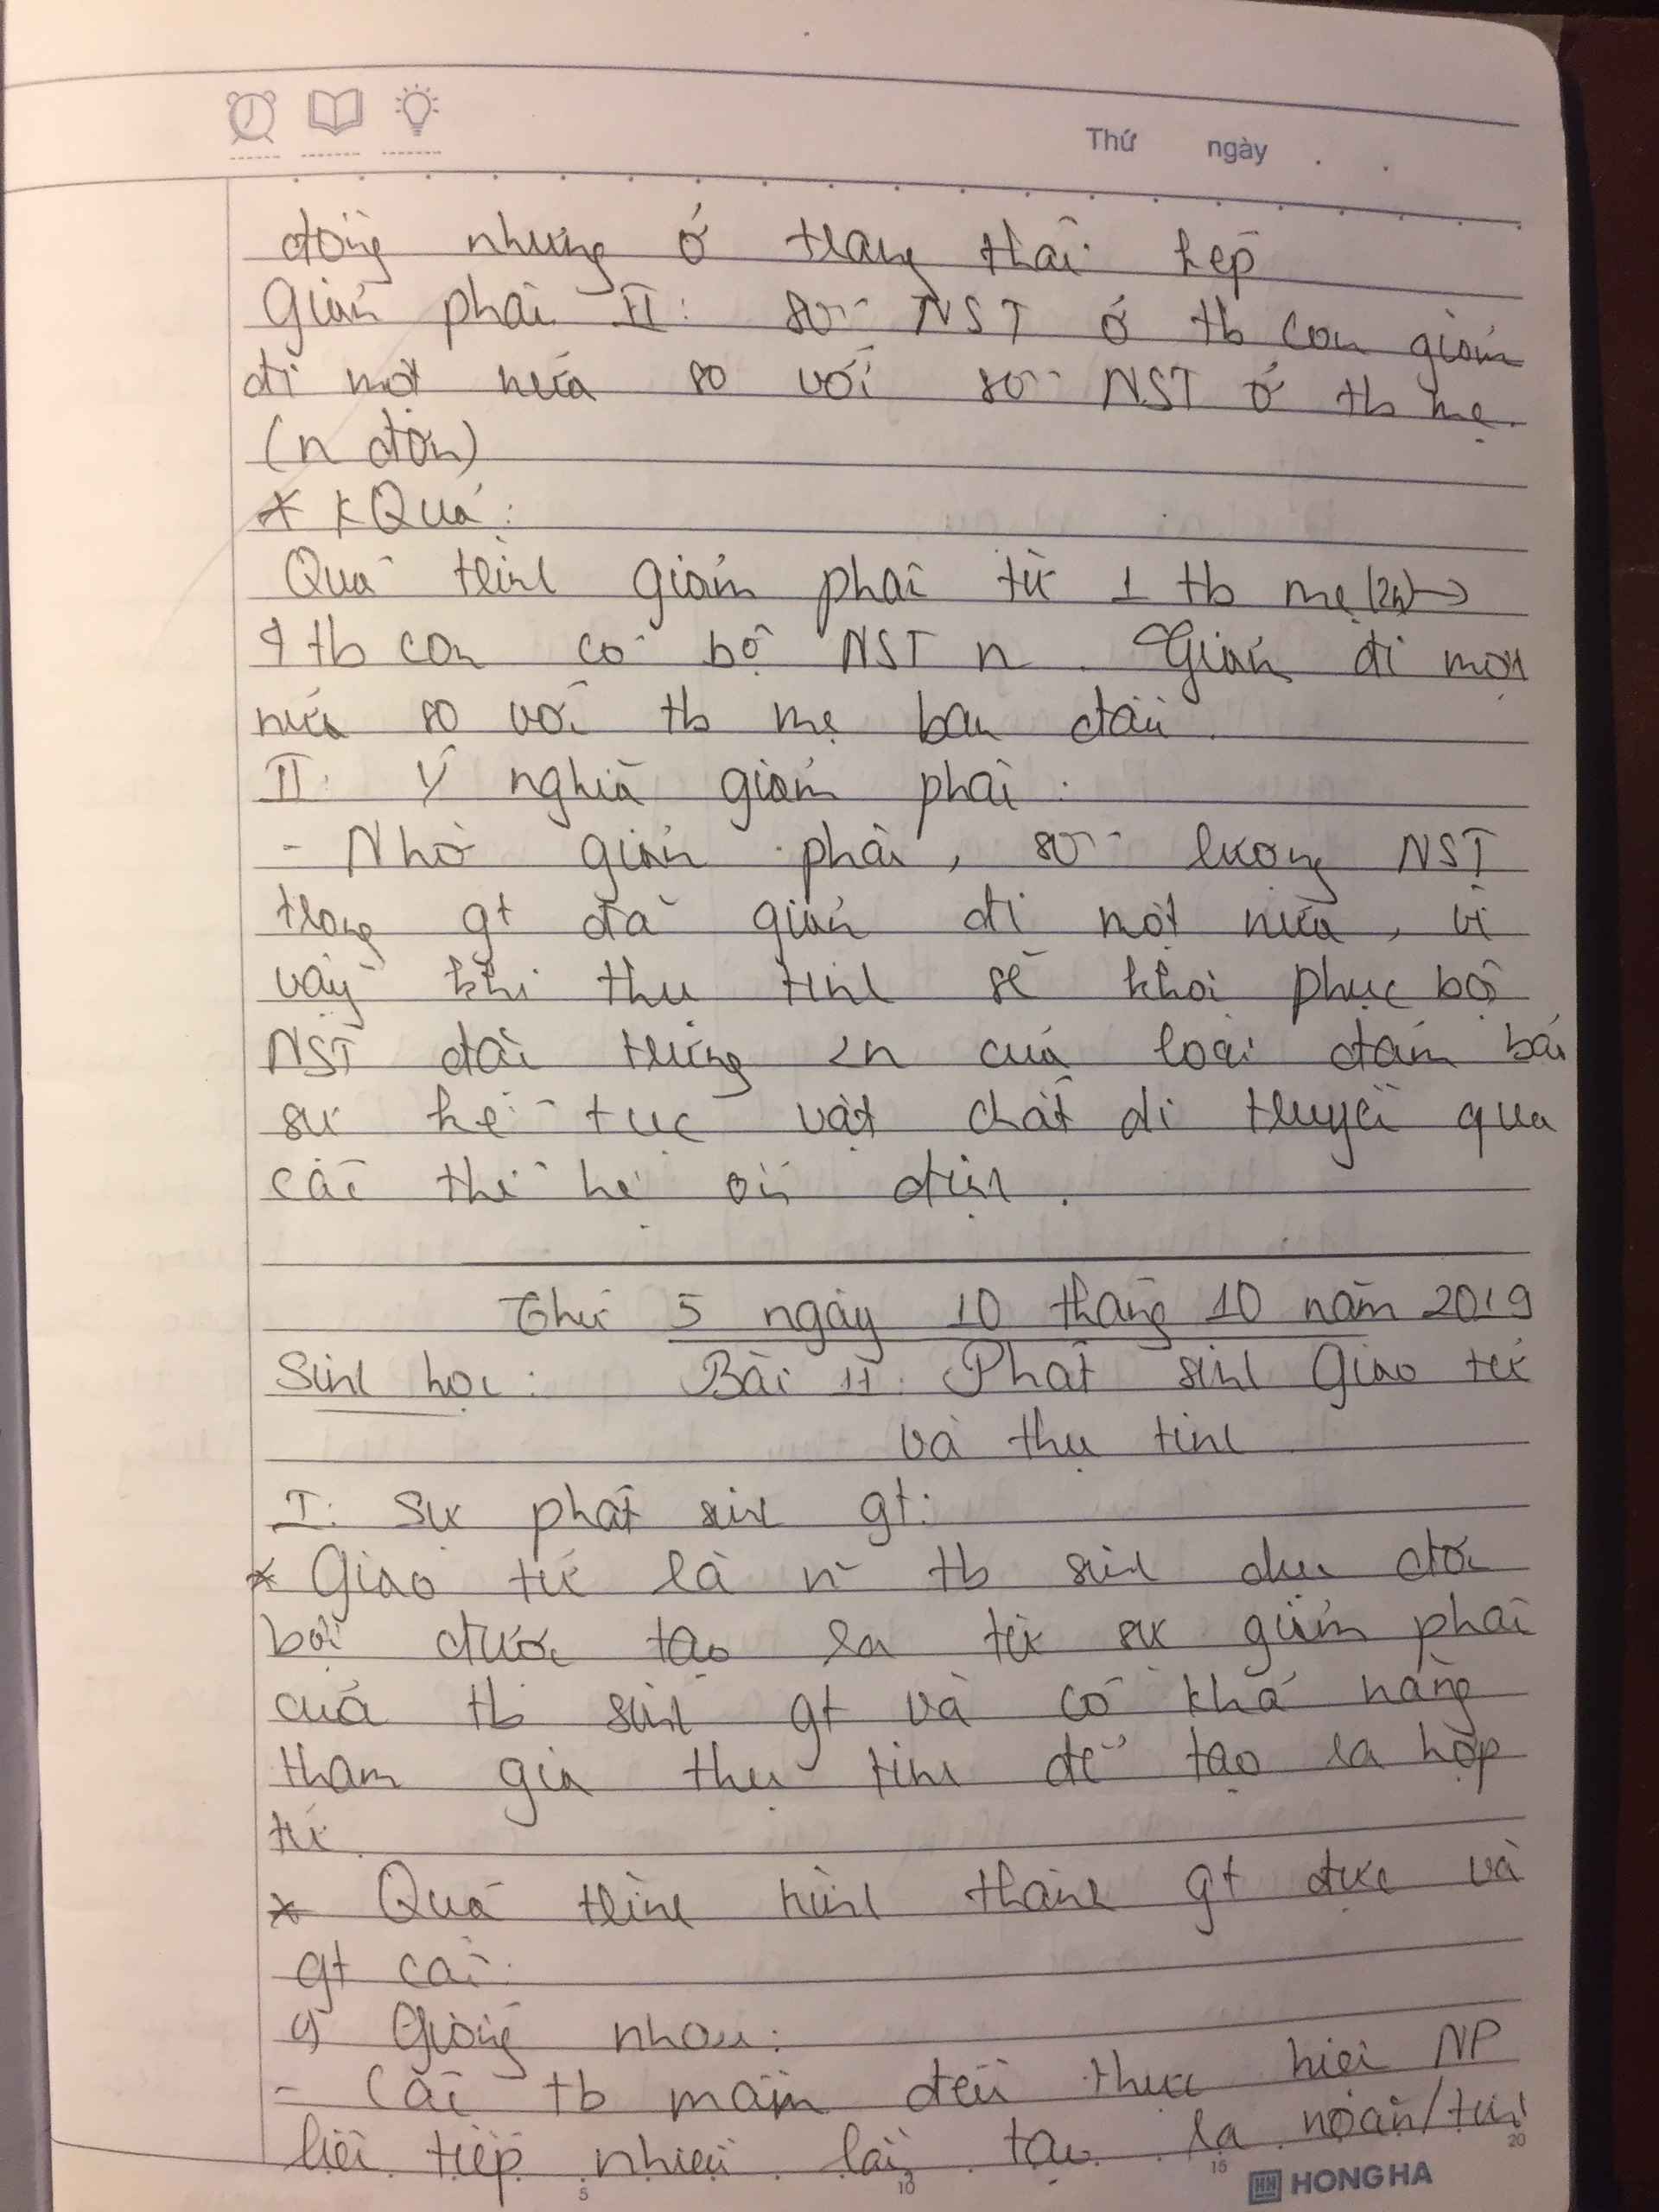 Thứ ngày
đồng nhưng ở trạng thái kép
Giảm phân II: số NST ở tb con giảm
đi một nửa so với số NST ở tb mẹ.
(n đơn)
* KQuả:
Quá trình giảm phân từ 1 tb mẹ (2n) →
4 tb con có bộ NST n. Giảm đi một
nửa so với tb mẹ ban đầu.
II. Ý nghĩa giảm phân:
- Nhờ giảm phân, số lượng NST
trong gt đã giảm đi một nửa, vì
vậy khi thụ tinh sẽ khôi phục bộ
NST đặc trưng 2n của loài đảm bảo
sự kế tục vật chất di truyền qua
các thế hệ ổn định.
Thứ 5 ngày 10 tháng 10 năm 2019
Sinh học: Bài 11. Phát sinh Giao tử
và thụ tinh
I. Sự phát sinh gt:
* Giao tử là tb sinh dục đơn
bội được tạo ra từ sự giảm phân
của tb sinh gt và có khả năng
tham gia thụ tinh để tạo ra hợp
tử.
* Quá trình hình thành gt đực và
gt cái:
Giống nhau:
- Các tb mầm đều thực hiện NP
liên tiếp nhiều lần tạo ra noãn/tinh
5 10 15 20
HONG HA